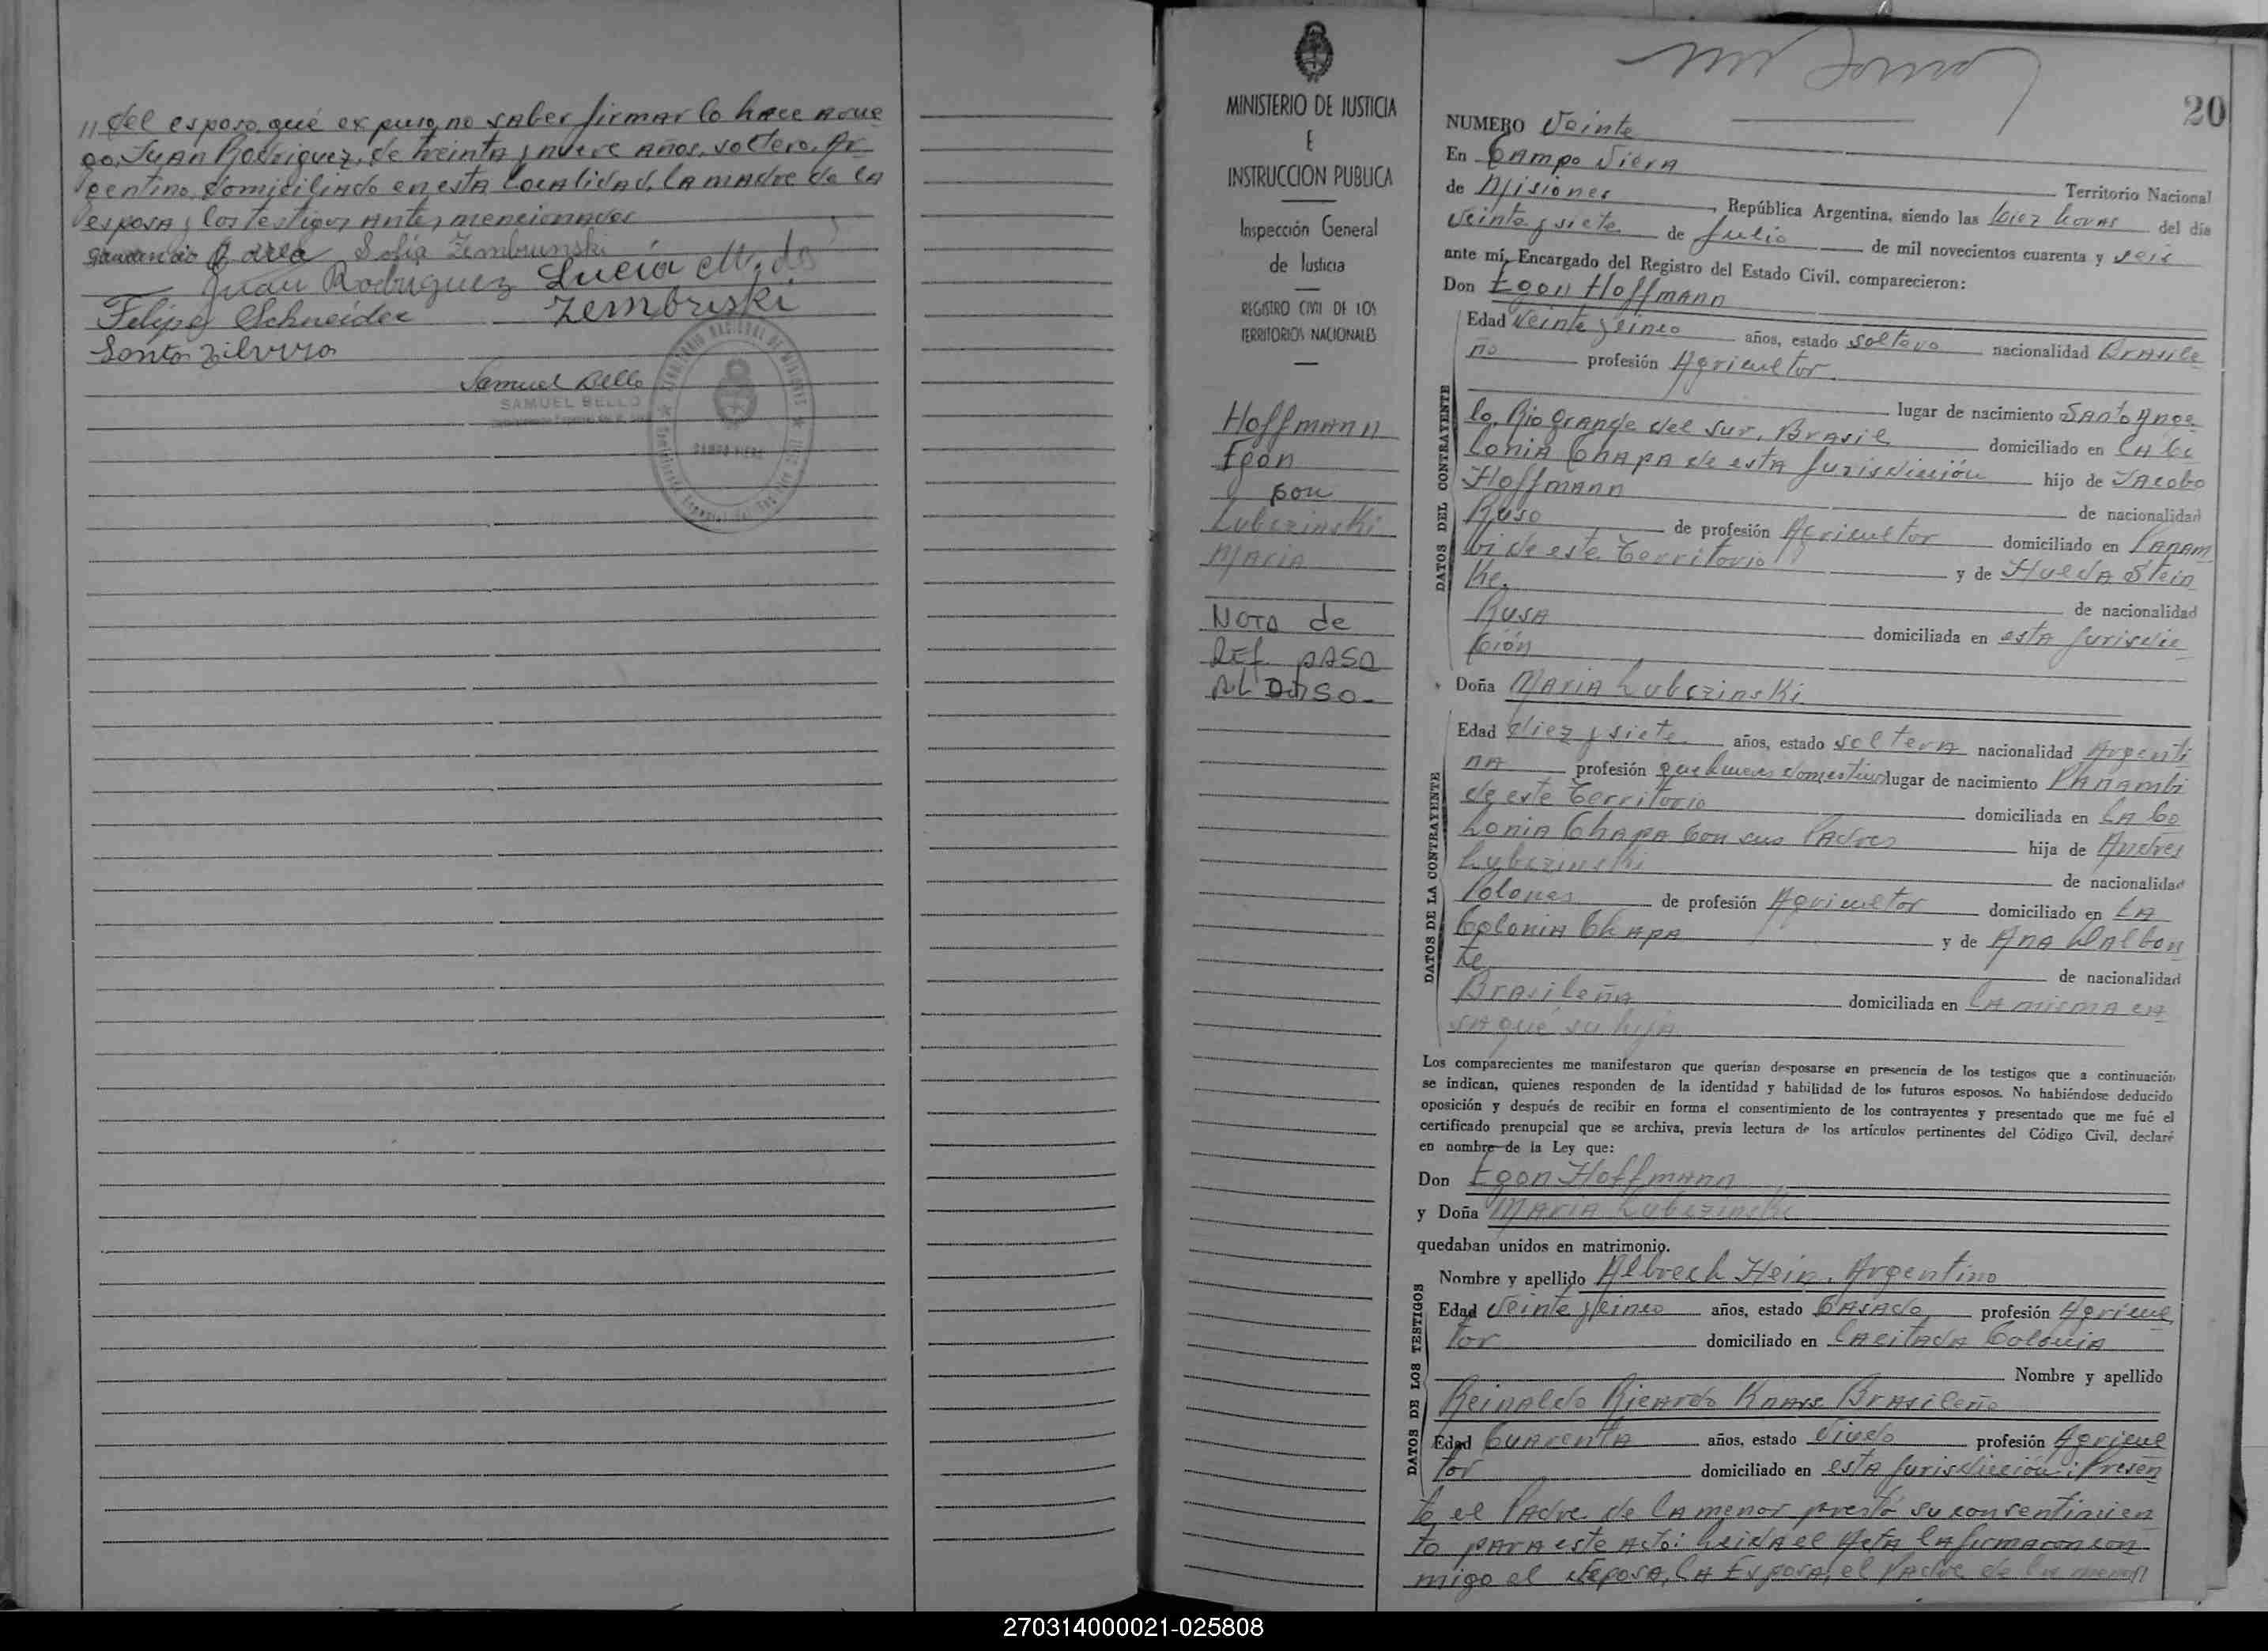 // del esposo, qué expuso no saber firmar lo hace a rue
go, Juan Rodriguez, de treinta y nueve años, soltero, Ar
gentino, domiciliado en esta localidad, la madre de la
esposa y los testigos antes mencionados
Sofía Zembrunski
Juan Rodriguez Lucía M. de
Zembriski
Felipe Schneider
Samuel Bello
SAMUEL BELLO
MINISTERIO DE JUSTICIA
E
INSTRUCCION PUBLICA
Inspección General
de Justicia
REGISTRO CIVIL DE LOS
TERRITORIOS NACIONALES
Hoffmann
Egon
con
Lubczinski
Maria
Nota de
Ref. pasa
al dorso-
20
NUMERO Veinte
En Campo Viera
de Misiones Territorio Nacional
, República Argentina, siendo las diez horas del día
veinte y siete de Julio de mil novecientos cuarenta y seis
ante mí, Encargado del Registro del Estado Civil, comparecieron:
Don Egon Hoffmann
DATOS DEL CONTRAYENTE
Edad veinte y cinco años, estado soltero nacionalidad Brasile
ño profesión Agricultor
lugar de nacimiento Santo Ange
lo, Rio Grande del Sur, Brasil domiciliado en la Co
lonia Chapa de esta Jurisdicción hijo de Jacobo
Hoffmann de nacionalidad
Ruso de profesión Agricultor domiciliado en Panam
bi de este Territorio y de Hulda Stein
ke de nacionalidad
Rusa domiciliada en esta Jurisdic
ción
Doña Maria Lubczinski
DATOS DE LA CONTRAYENTE
Edad diez y siete años, estado soltera nacionalidad Argenti
na profesión quehaceres domesticos lugar de nacimiento Panambi
de este Territorio domiciliada en la Co
lonia Chapa con sus Padres hija de Andres
Lubczinski de nacionalidad
Polones de profesión Agricultor domiciliado en la
Colonia Chapa y de Ana Walbon
te de nacionalidad
Brasileña domiciliada en la misma ca
sa qué su hija
Los comparecientes me manifestaron que querían desposarse en presencia de los testigos que a continuación
se indican, quienes responden de la identidad y habilidad de los futuros esposos. No habiéndose deducido
oposición y después de recibir en forma el consentimiento de los contrayentes y presentado que me fué el
certificado prenupcial que se archiva, previa lectura de los artículos pertinentes del Código Civil, declaré
en nombre de la Ley que:
Don Egon Hoffmann
y Doña Maria Lubczinski
quedaban unidos en matrimonio.
DATOS DE LOS TESTIGOS
Nombre y apellido Albrech Hein, Argentino
Edad veinte y cinco años, estado Casado profesión Agricul
tor domiciliado en la citada Colonia
Nombre y apellido
Reinaldo Ricardo Knays Brasileño
Edad Cuarenta años, estado viudo profesión Agricul
tor domiciliado en esta Jurisdicción: Presen
te el Padre de la menor prestó su consentimien
to para este acto: Leida el Acta la firmaron con
migo el Esposo, la Esposa, el Padre de la menor
270314000021-025808